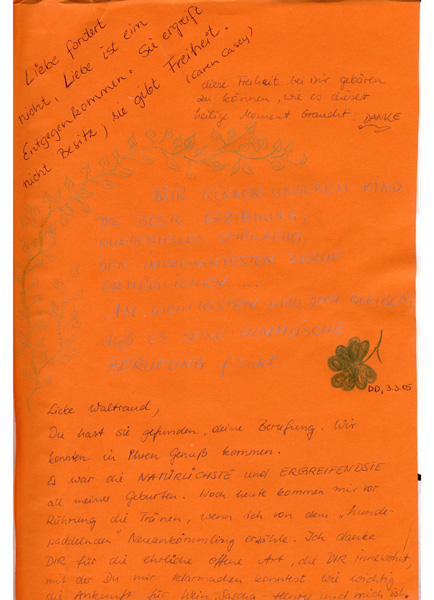 Liebe fordert
nicht, Liebe ist ein
Entgegenkommen. Sie ergreift
nicht Besitz, sie gibt Freiheit.
(Caren Casey)
diese Freiheit bei Dir gebären
zu können, wie es dieser
heilige Moment braucht. DANKE
WIR KÖNNEN UNSEREM KIND
DIE BESTE ERZIEHUNG,
SPIELZEUG,
DEN INTERESSANTESTEN
ERMÖGLICHEN ...
AM WICHTIGSTEN WIRD
ES SEINE HIMMLISCHE
BERUFUNG findet
DD, 3.3.05
Liebe Waltraud,
Du hast sie gefunden, deine Berufung. Wir
konnten in Ihren Genuß kommen.
Es war die NATÜRLICHSTE und ERGREIFENDSTE
all meiner Geburten. Noch heute kommen mir vor
Rührung die Tränen, wenn ich von dem „hunde-
paddelnden" Neuankömmling erzähle. Ich danke
DIR für die ehrliche offene Art, die DIR innewohnt,
mit der Du mir klarmachen konntest wie wichtig
die Ankunft für klein Sascha-Henry und mich ist.